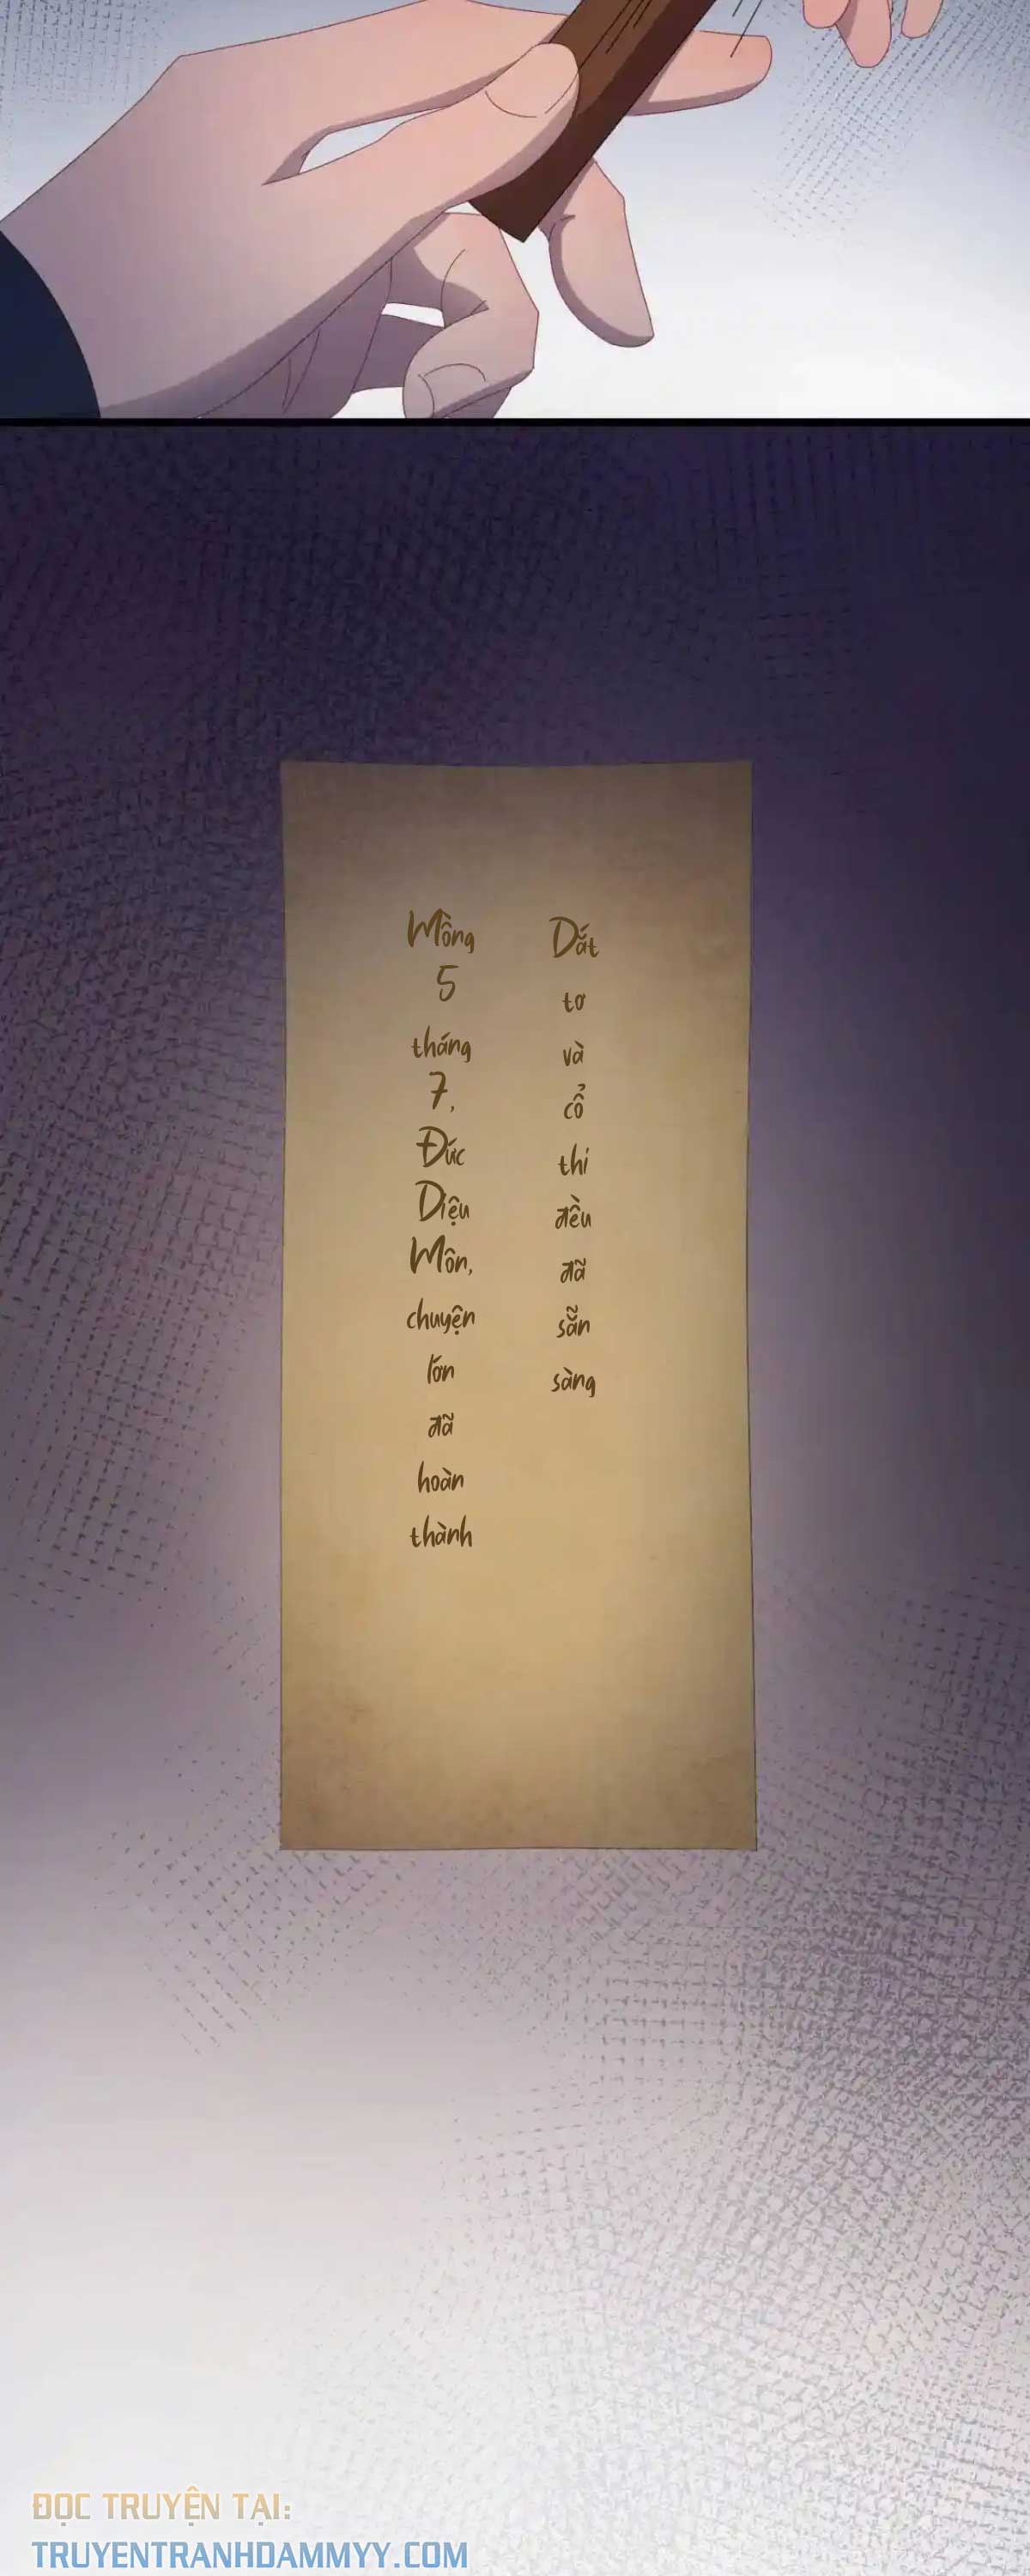 Dắt tơ và cổ thi đều đã sẵn sàng
Mồng 5 tháng 7, Đức Diệu Môn, chuyện lớn đã hoàn thành
ĐỌC TRUYỆN TẠI:
TRUYENTRANHDAMMYY.COM